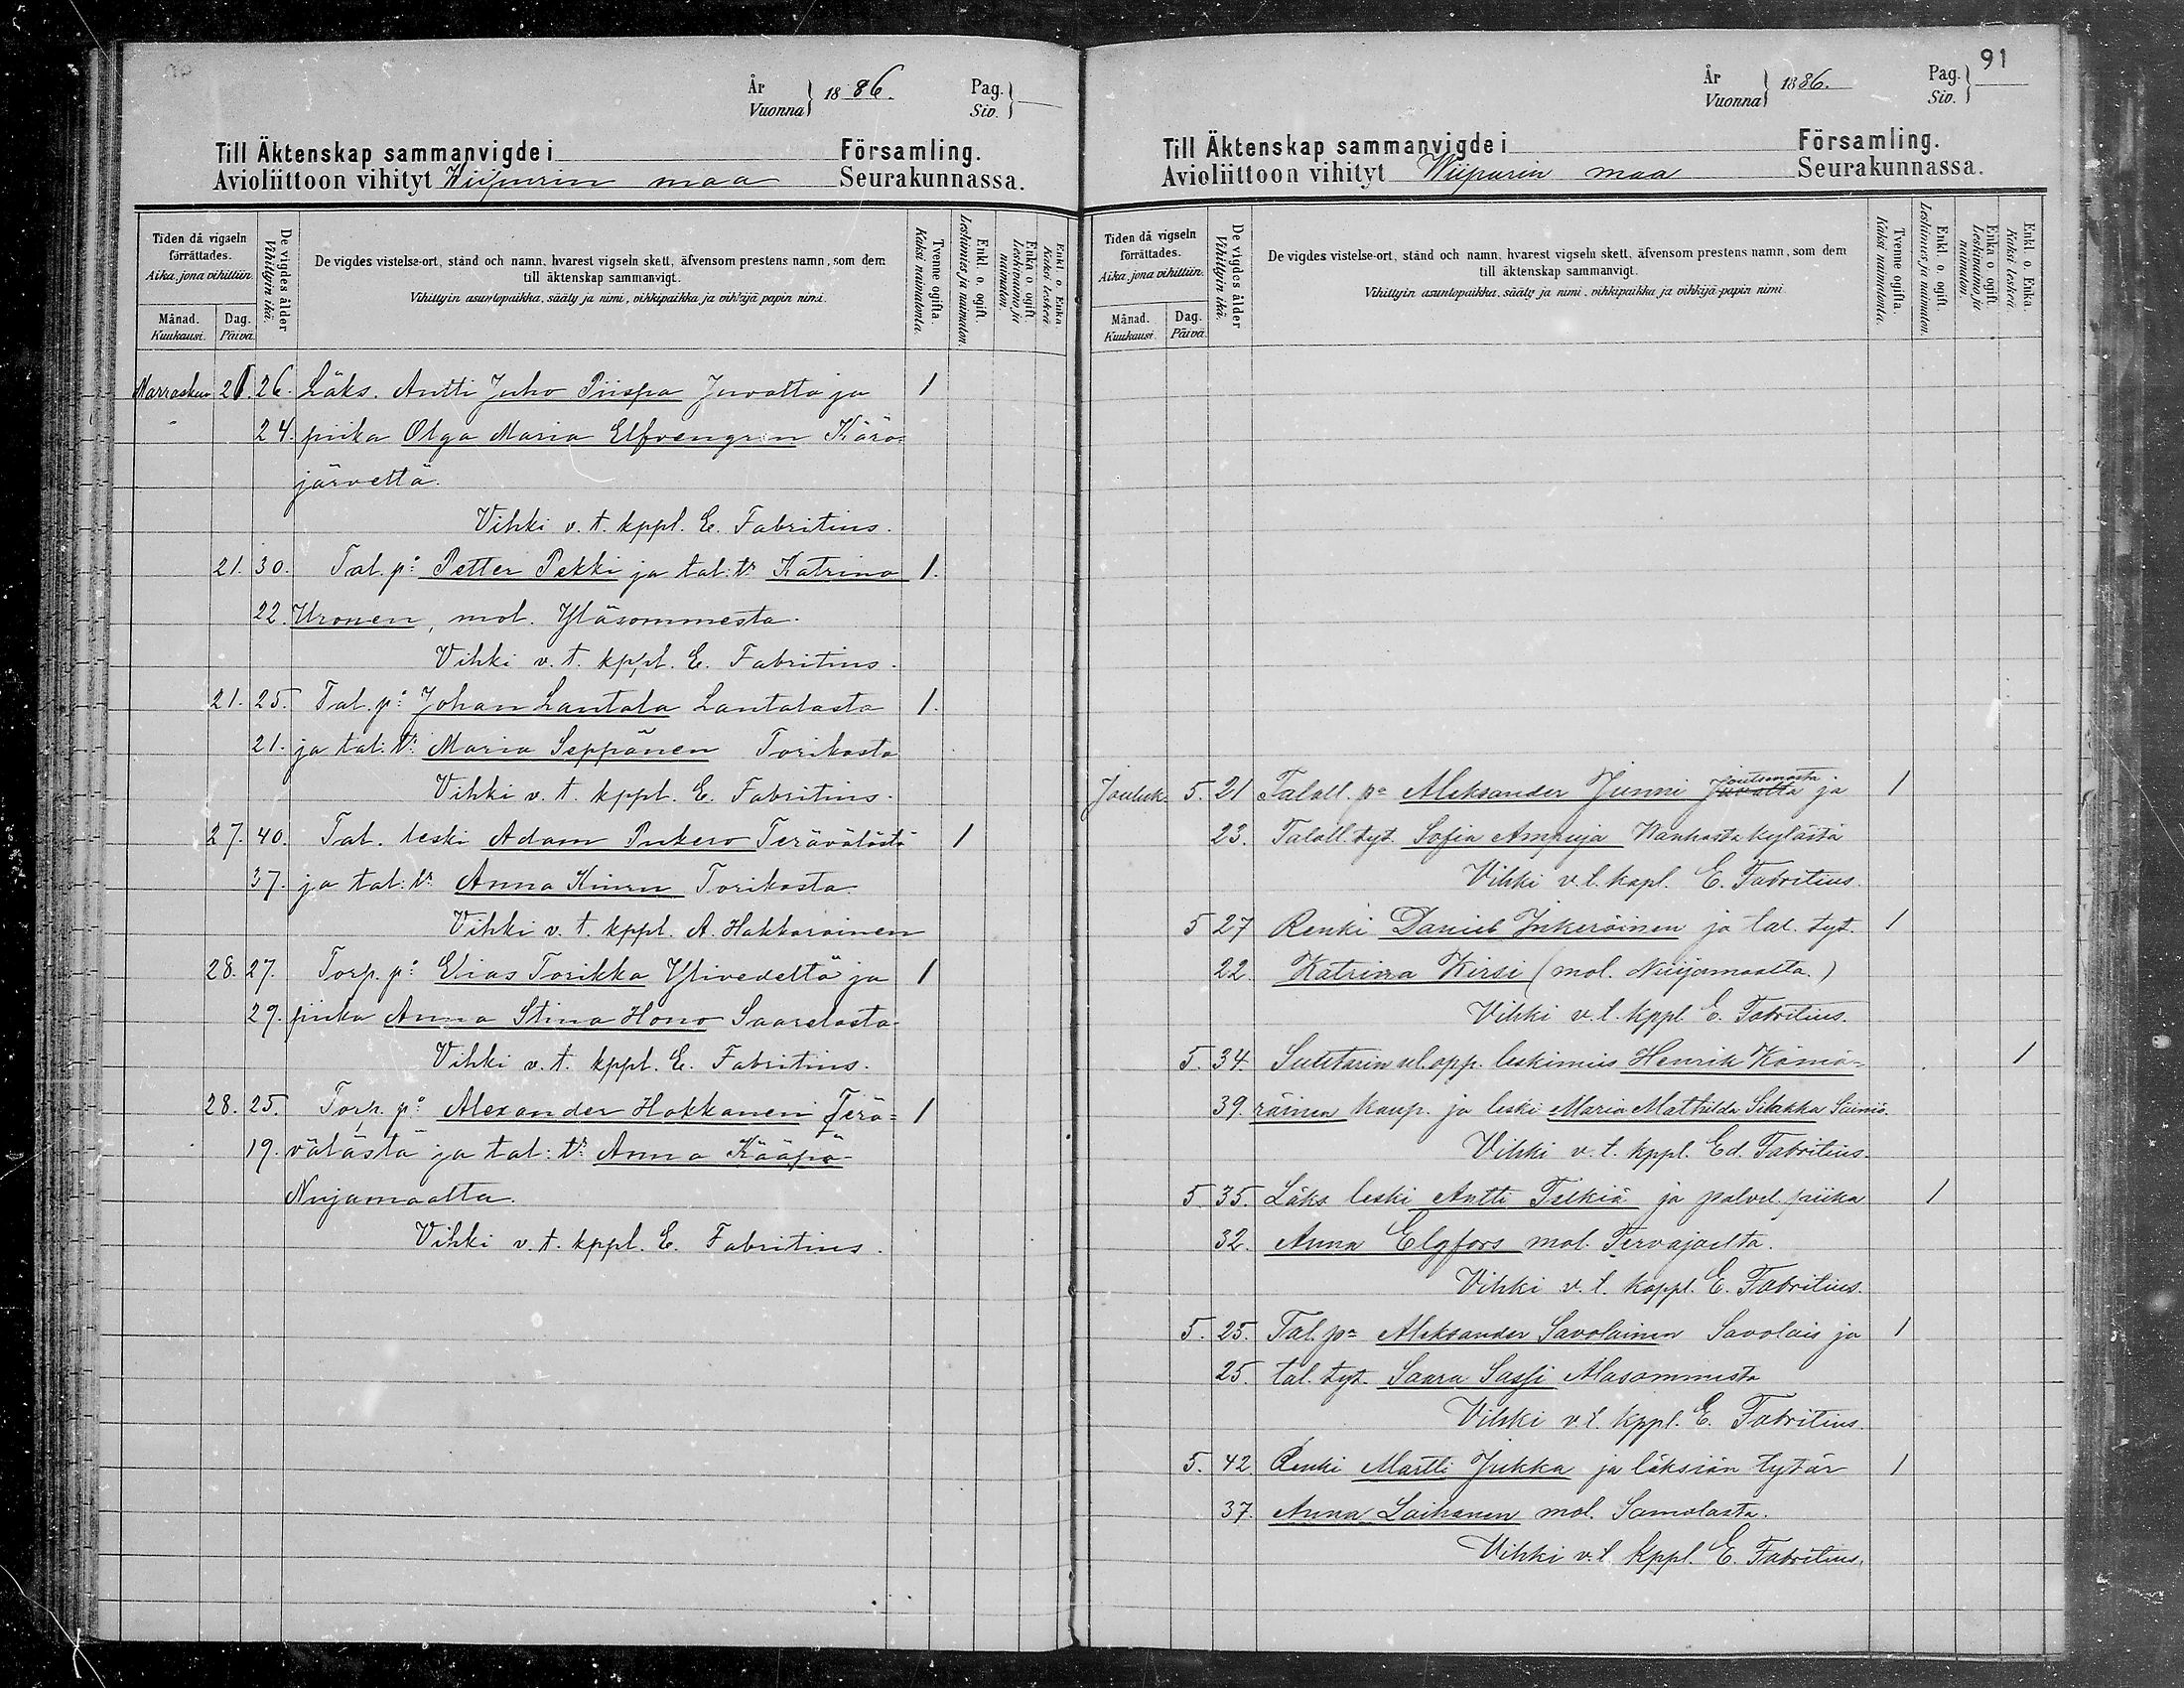 År
Vuonna
1886.
Pag.
Siv.
Till Äktenskap sammanvigde i Församling.
Avioliittoon vihityt Wiipurin maa Seurakunnassa.
Tiden då vigseln förrättades.
Aika, jona vihittiin.
Månad. Dag.
Kuukausi. Päivä.
De vigdes ålder
Vihittyin ikä.
De vigdes vistelse-ort, stånd och namn, hvarest vigseln skett, äfvensom prestens namn, som dem
till äktenskap sammanvigt.
Vihittyin asuntopaikka, sääty ja nimi, vihkipaikka ja vihkijä papin nimi.
Tvenne ogifta.
Kaksi naimatonta.
Enkl. o. ogift.
Leskimies ja naimaton.
Enka o. ogift
Leskivaimo ja naimaton.
Enkl. o. Enka
Kaksi leskeä
Marraskuu 21. 26. Läks. Antti Juho Piispa Juvalta ja 1
24. piika Olga Maria Elfvengren Kärs=
järveltä.
Vihki v. t. kppl. E. Fabritius.
21. 30. Tal. p: Petter Pekki ja tal: tr Katrina 1.
22. Uronen, mol. Yläsommesta.
Vihki v. t. kppl. E. Fabritius.
21. 25. Tal. p: Johan Lantala Lantalasta 1.
21. ja tal: tr: Maria Seppänen Torikasta
Vihki v. t. kppl. E. Fabritius.
27. 40. Tal. leski Adam Pukero Terävälästä 1
37. ja tal: tr: Anna Torikasta
Vihki v. t. kppl. A. Hakkarainen
28. 27. Torp. p: Elias Torikka Ylivedeltä ja 1
29. piika Anna Stina Hono Saarelasta
Vihki v. t. kppl. E. Fabritius.
28. 25. Torp. p: Alexander Hakkanen Terä= 1
19. välästä ja tal: tr: Anna Kääpä
Nuijamaalta.
Vihki v. t. kppl. E. Fabritius.
91
År
Vuonna
1886.
Pag.
Siv.
Till Äktenskap sammanvigde i Församling.
Avioliittoon vihityt Wiipurin maa Seurakunnassa.
Tiden då vigseln förrättades.
Aika, jona vihittiin.
Månad. Dag.
Kuukausi. Päivä.
De vigdes ålder
Vihittyin ikä.
De vigdes vistelse-ort, stånd och namn, hvarest vigseln skett, äfvensom prestens namn, som dem
till äktenskap sammanvigt.
Vihittyin asuntopaikka, sääty ja nimi, vihkipaikka ja vihkijä papin nimi
Tvenne ogifta.
Kaksi naimatonta.
Enkl. o. ogift.
Leskimies ja naimaton.
Enka o. ogift.
Leskivaimo ja naimaton.
Enkl. o. Enka.
Kaksi leskeä.
Jouluk. 5. 21 Taloll. p= Aleksander Junni Juvalta Joutsenosta ja 1
23. Taloll. tyt. Sofia Ampuja Wanhasta kylästä
Vihki v. t. kapl. E. Fabritius.
5 27 Renki Daniel Inkeröinen ja tal. tyt. 1
22. Katrina Kirsi (mol. Nuijamaalta.)
Vihki v. t. kppl. E. Fabritius.
5. 34. opp. leskimies Henrik Kämä= 1
39. räinen kaup. ja leski Maria Mathilda Silakka Säiniö.
Vihki v. t. kppl. Ed. Fabritius.
5. 35. Läks leski Antti Telkiä ja palvel. piika 1
32. Anna Elgfors mol. Tervajoelta.
Vihki v. t. kappl. E. Fabritius.
5. 25. Tal. p= Aleksander Savolainen Savolais ja 1
25. tal. tyt. Saara Sassi Alasommesta
Vihki v. t. kppl. E. Fabritius.
5. 42 Renki Martti Jukka ja läksiän tytär 1
37. Anna Laihanen mol. Samolasta.
Vihki v. t. kppl. E. Fabritius.